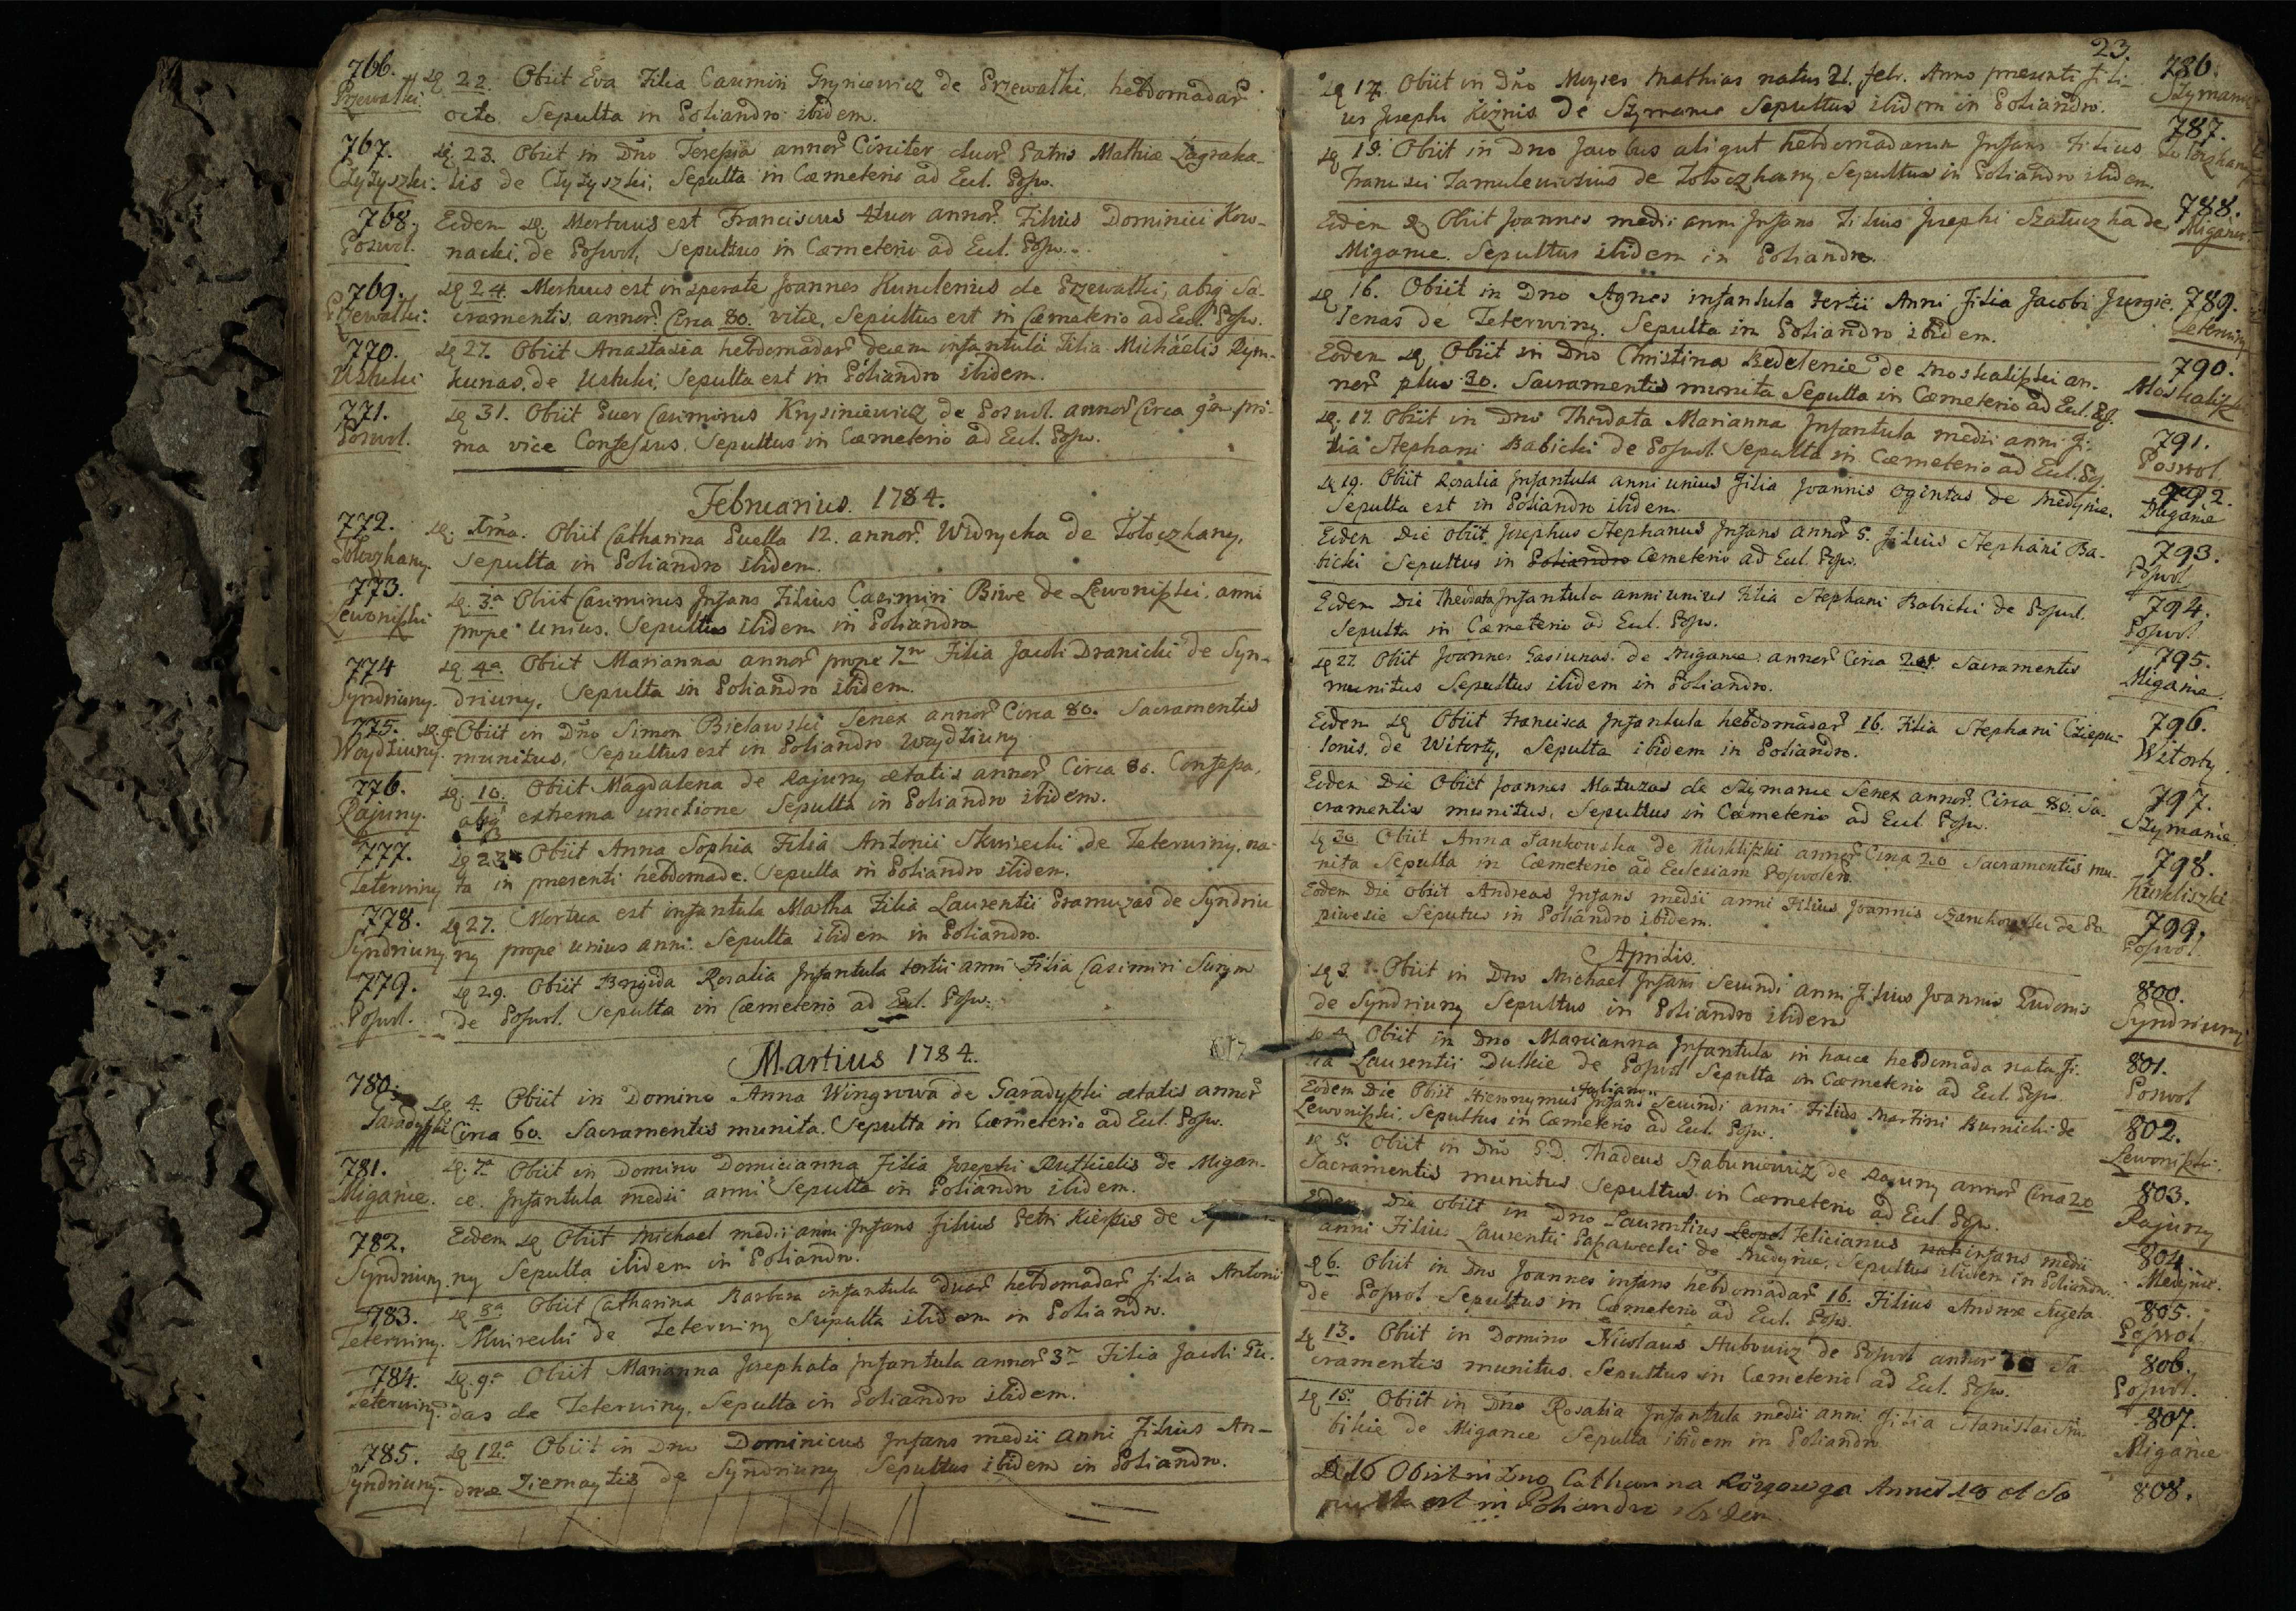 766.
Przewalki.
D. 22. Obiit Eva Filia Casimiri Gryniewicz de Przewalki, hebdomadar
octo. Sepulta in Poliandro ibidem.
767.
Czyżyszki.
D. 23. Obiit in Dno Teressia annor Circiter duor Patris Mathiæ Zagraka-
lis de Czyżyszki, Sepulta in Cæmeterio ad Eccl. Posw.
768.
Poswol.
Eodem D. Mortuus est Franciscus 4tuor annor. Filius Dominici Kow-
nacki, de Poswol, Sepultus in Cæmeterio ad Eccl. Posw.
769.
Przewalki.
D. 24. Mortuus est insperate Joannes Kundenius de Przewalki, absq Sa-
cramentis, annor. Circa 80. vitæ, Sepultus est in Cæmeterio ad Eccl. Posw.
770.
Ustuki
D. 27. Obiit Anastasia hebdomadar decem infantula Filia Michaelis Rym-
kunas, de Ustuki, Sepulta est in Poliandro ibidem.
771.
Poswol.
D. 31. Obiit Puer Casimirus Krysiniewicz de Poswol. annor Circa 9m pri-
ma vice Confessus. Sepultus in Cæmeterio ad Eccl. Posw.
Februarius. 1784.
772.
Toloczkany.
D. Ima. Obiit Catharina Puella 12. annor. Widrycka de Toloczkany,
Sepulta in Poliandro ibidem.
773.
Lewoniszki
D. 3a Obiit Casimirus Infans Filius Casimiri Biwe de Lewoniszki, anni
prope unius. Sepultus ibidem in Poliandro
774
Syndriuny.
D. 4a. Obiit Marianna annor prope 7m Filia Jacobi Dranicki de Syn-
driuny. Sepulta in Poliandro ibidem.
775.
Woydziuny.
D. 9 Obiit in Dno Simon Bielawski Senex annor Circa 80. Sacramentis
munitus, Sepultus est in Poliandro Woydziuny
776.
Rajuny.
D. 10. Obiit Magdalena de Rajuny ætatis annor Circa 80. Confessa,
absq extrema unctione Sepulta in Poliandro ibidem.
777.
Teterwiny
D. 23 Obiit Anna Sophia Filia Antonii Skwirecki de Teterwiny, na-
ta in presenti hebdomade. Sepulta in Poliandro ibidem.
778.
Syndriuny
D. 27. Mortua est infantula Martha Filia Laurentii Pramuzas de Syndriu
ny prope unius anni. Sepulta ibidem in Poliandro.
779.
Poswol.
D. 29. Obiit Brigida Rosalia Infantula tertii anni Filia Casimiri Surym
de Poswol. Sepulta in Cæmeterio ad Eccl. Posw.
Martius 1784.
780.
Garadyszki
D. 4. Obiit in Domino Anna Wingrowa de Garadyszki ætatis annor
Circa 60. Sacramentis munita. Sepulta in Cæmeterio ad Eccl. Posw.
781.
Miganie.
D. 7a Obiit in Domino Domicianna Filia Josephi Rutkielis de Migan-
ce. Infantula medii anni Sepulta in Poliandro ibidem.
782.
Syndriuny
Eodem D Obiit Michael medii anni Infans Filius Petri Kieszis de
ny Sepulta ibidem in Poliandro.
783.
Teterwiny.
D. 8a Obiit Catharina Barbara infantula duar hebdomadar Filia Antoni
Skwirecki de Teterwiny Sepulta ibidem in Poliandro.
784.
Teterwiny.
D. 9a Obiit Marianna Josephata Infantula annor 3m Filia Jacobi Gu-
das de Teterwiny, Sepulta in Poliandro ibidem.
785.
Syndriuny.
D. 12a Obiit in Dno Dominicus Infans medii anni Filius An-
dreæ Ziemaytis de Syndriuny Sepultus ibidem in Poliandro.
23.
786.
Szymanie
D 14. Obiit in Dno Moyses Mathias natus 21. febr. Anno presenti Fili-
us Josephi Kiznis de Szymanie Sepultus ibidem in Poliandro.
787.
Toloczkany
D 15. Obiit in Dno Jacobus aliqut hebdomadarum Infans Filius
Francisci Tamulewicius de Toloczkany, Sepultus in Poliandro ibidem.
788.
Miganie
Eodem D Obiit Joannes medii anni Infans Filius Josephi Szatuczka de
Miganie. Sepultus ibidem in Poliandro.
789.
Teterwiny
D 16. Obiit in Dno Agnes infantula tertii Anni Filia Jacobi Jurgie-
lenas de Teterwiny. Sepulta in Poliandro ibidem.
790.
Moskaliszki
Eodem D Obiit in Dno Christina Bedelenie de Moskaliszki an-
nor plus 30. Sacramentis munita Sepulta in Cæmeterio ad Eccl. Posw.
791.
Poswol
D. 17. Obiit in Dno Theodata Marianna Infantula medii anni Fi-
lia Stephani Babicki de Poswol Sepulta in Cæmeterio ad Eccl. Posw.
792.
Miganie
D 19. Obiit Rosalia Infantula anni unius Filia Joannis Ogintas de Medynie.
Sepulta est in Poliandro ibidem.
793.
Poswol
Eodem Die Obiit Josephus Stephanus Infans annor 5. Filius Stephani Ba-
bicki Sepultus in Poliandro Cæmeterio ad Eccl. Posw.
794.
Poswol
Eodem Die Theodata Infantula anni unius Filia Stephani Babicki de Poswol.
Sepulta in Cæmeterio ad Eccl. Posw.
795.
Miganie.
D 27. Obiit Joannes Gasiunas de Miganie annor Circa Sacramentis
munitus Sepultus ibidem in Poliandro.
796.
Witorty.
Eodem D Obiit Francisca Infantula hebdomadar 16. Filia Stephani Cziepu-
lonis, de Witorty, Sepulta ibidem in Poliandro.
797.
Szymanie
Eodem Die Obiit Joannes Matuzas de Szymanie Senex annor. Circa 80. Sa-
cramentis munitus, Sepultus in Cæmeterio ad Eccl Posw.
798.
Kunkliszki
D 30. Obiit Anna Jankowska de Kunkliszki annor Circa 20 Sacramentis mu-
nita Sepulta in Cæmeterio ad Ecclesiam Poswolen.
799.
Poswol.
Eodem Die Obiit Andreas Infans medii anni Filius Joannis Szarchowski de Po
piwesie Sepultus in Poliandro ibidem.
Aprilis.
800.
Syndriuny
D 3. Obiit in Dno Michael Infans Secundi anni Filius Joannis Gudonis
de Syndriuny Sepultus in Poliandro ibidem
801.
Poswol
D 4. Obiit in Dno Marianna Infantula in hacce hebdomada nata Fi-
lia Laurentii Dulkie de Poswol Sepulta in Cæmeterio ad Eccl. Posw.
802.
Lewoniszki.
Eodem Die Obiit Hieronymus Julianus Infans Secundi anni Filius Martini Burnicki de
Lewoniszki, Sepultus in Cæmeterio ad Eccl. Posw.
803.
Rajuny
D 5. Obiit in Dno G.D. Thadeus Szabuniewicz de Rajuny annor Circa 20
Sacramentis munitus Sepultus in Cæmeterio ad Eccl Posw.
804
Medynie.
Eodem Die obiit in Dno Laurentius Leopol Felicianus nat infans medii
anni Filius Laurentii Paszawecki de Medynie, Sepultus ibidem in Poliandro.
805.
Poswol
D 6. Obiit in Dno Joannes infans hebdomadar 16. Filius Andreæ Sugeta
de Poswol Sepultus in Cæmeterio ad Eccl. Posw.
806.
Poswol.
D 13. Obiit in Domino Nicolaus Stubowicz de Poswol annor Sa-
cramentis munitus. Sepultus in Cæmeterio ad Eccl. Posw.
807.
Miganie
D 15. Obiit in Dno Rosalia Infantula medii anni Filia Stanislai
bikie de Miganie Sepulta ibidem in Poliandro
808.
D 16 Obiit in Dno Catharina
est in Poliandro ibidem.